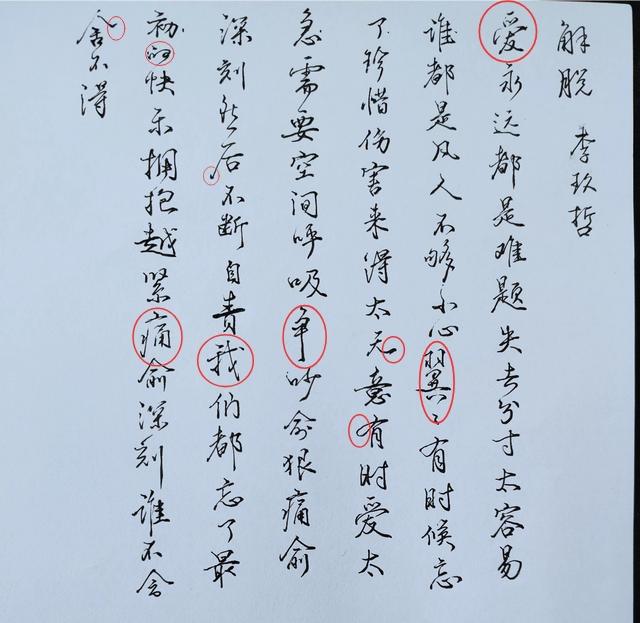 解脱 李玖哲
爱永远都是难题失去分寸太容易
谁都是凡人不够小心翼々有时候忘
了珍惜伤害来得太无意有时爱太
急需要空间呼吸争吵俞狠痛俞
深刻然后不断自责我们都忘了最
初的快乐拥抱越紧痛俞深刻谁不会
舍不得